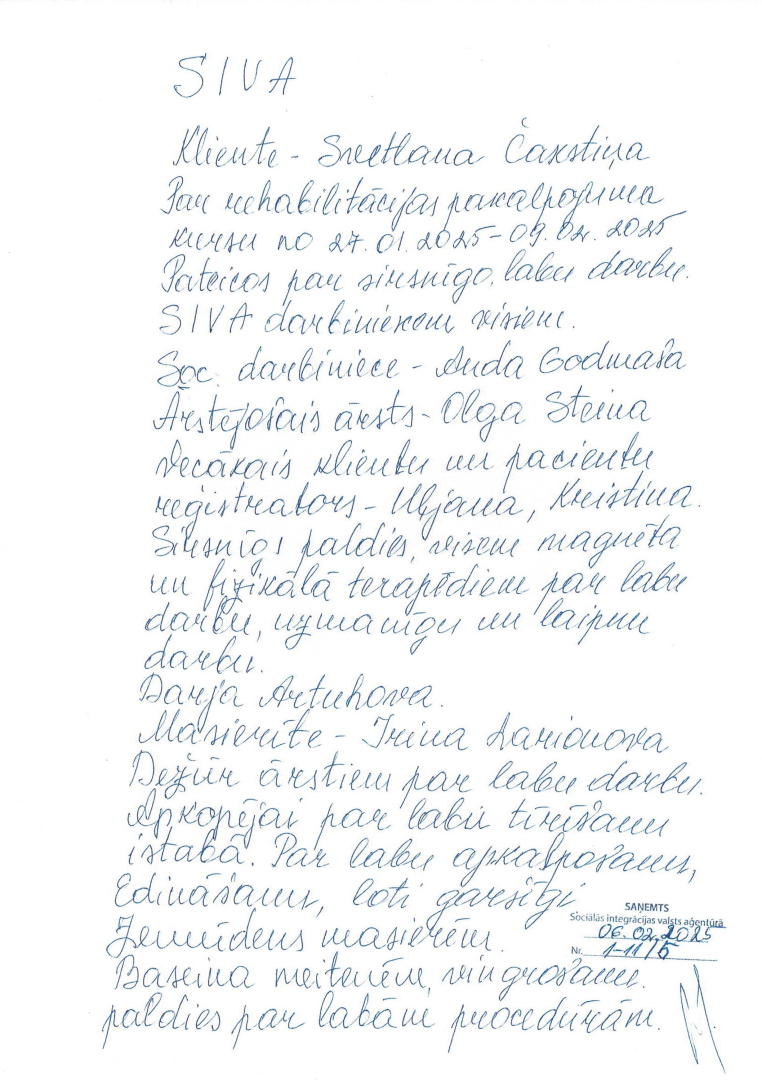 SIVA
Kliente - Svetlana Čakstiņa
Par rehabilitācijas pakalpojuma
kursu no 27.01.2025-09.02.2025
Pateicos par sirsnīgo, labu darbu.
SIVA darbiniekem visiem.
Soc. darbiniece - Anda Godmaša
Ārstējošais ārsts - Olga Steina
Vecākais klientu un pacientu
reģistrators - Uļjana, Kristina.
Sirsnīgs paldies, visem magnēta
un fizikālā terapēdiem par labu
darbu, uzmanīgu un laipnu
darbu.
Darja Artuhova.
Masierīte - Irina Larionova
Dežūr ārstiem par labu darbu.
Apkopējai par labu tīrīšanu
istabā. Par labu apkalpošanu,
Edināšanu, loti garsīgi
Zemūdens masierēm.
Baseina meitenēm, vingrošanu.
paldies par labām procedūrām.
SAŅEMTS
Sociālās integrācijas valsts aģentūrā
06.02.2025
Nr. 1-11/5